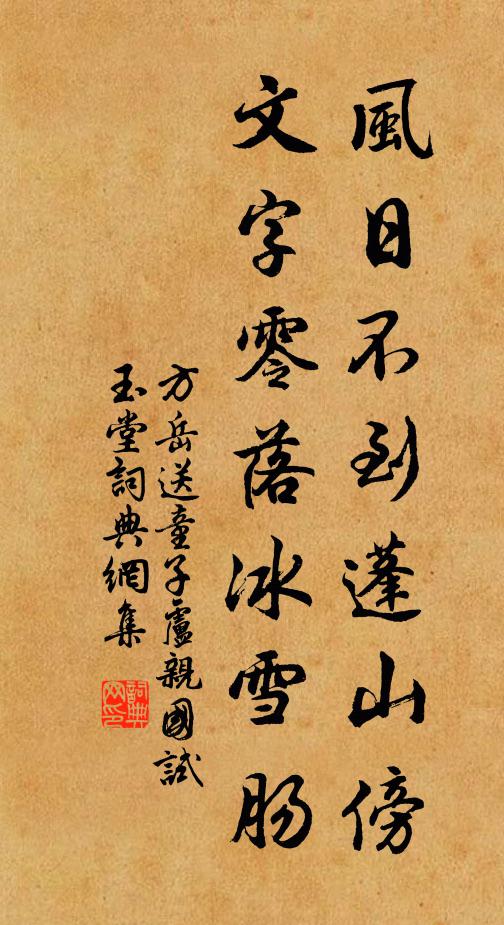 風日不到蓬山傍
文字零落冰雪腸
方岳送童子盧親國試
玉堂詞典網集
詞典
网印